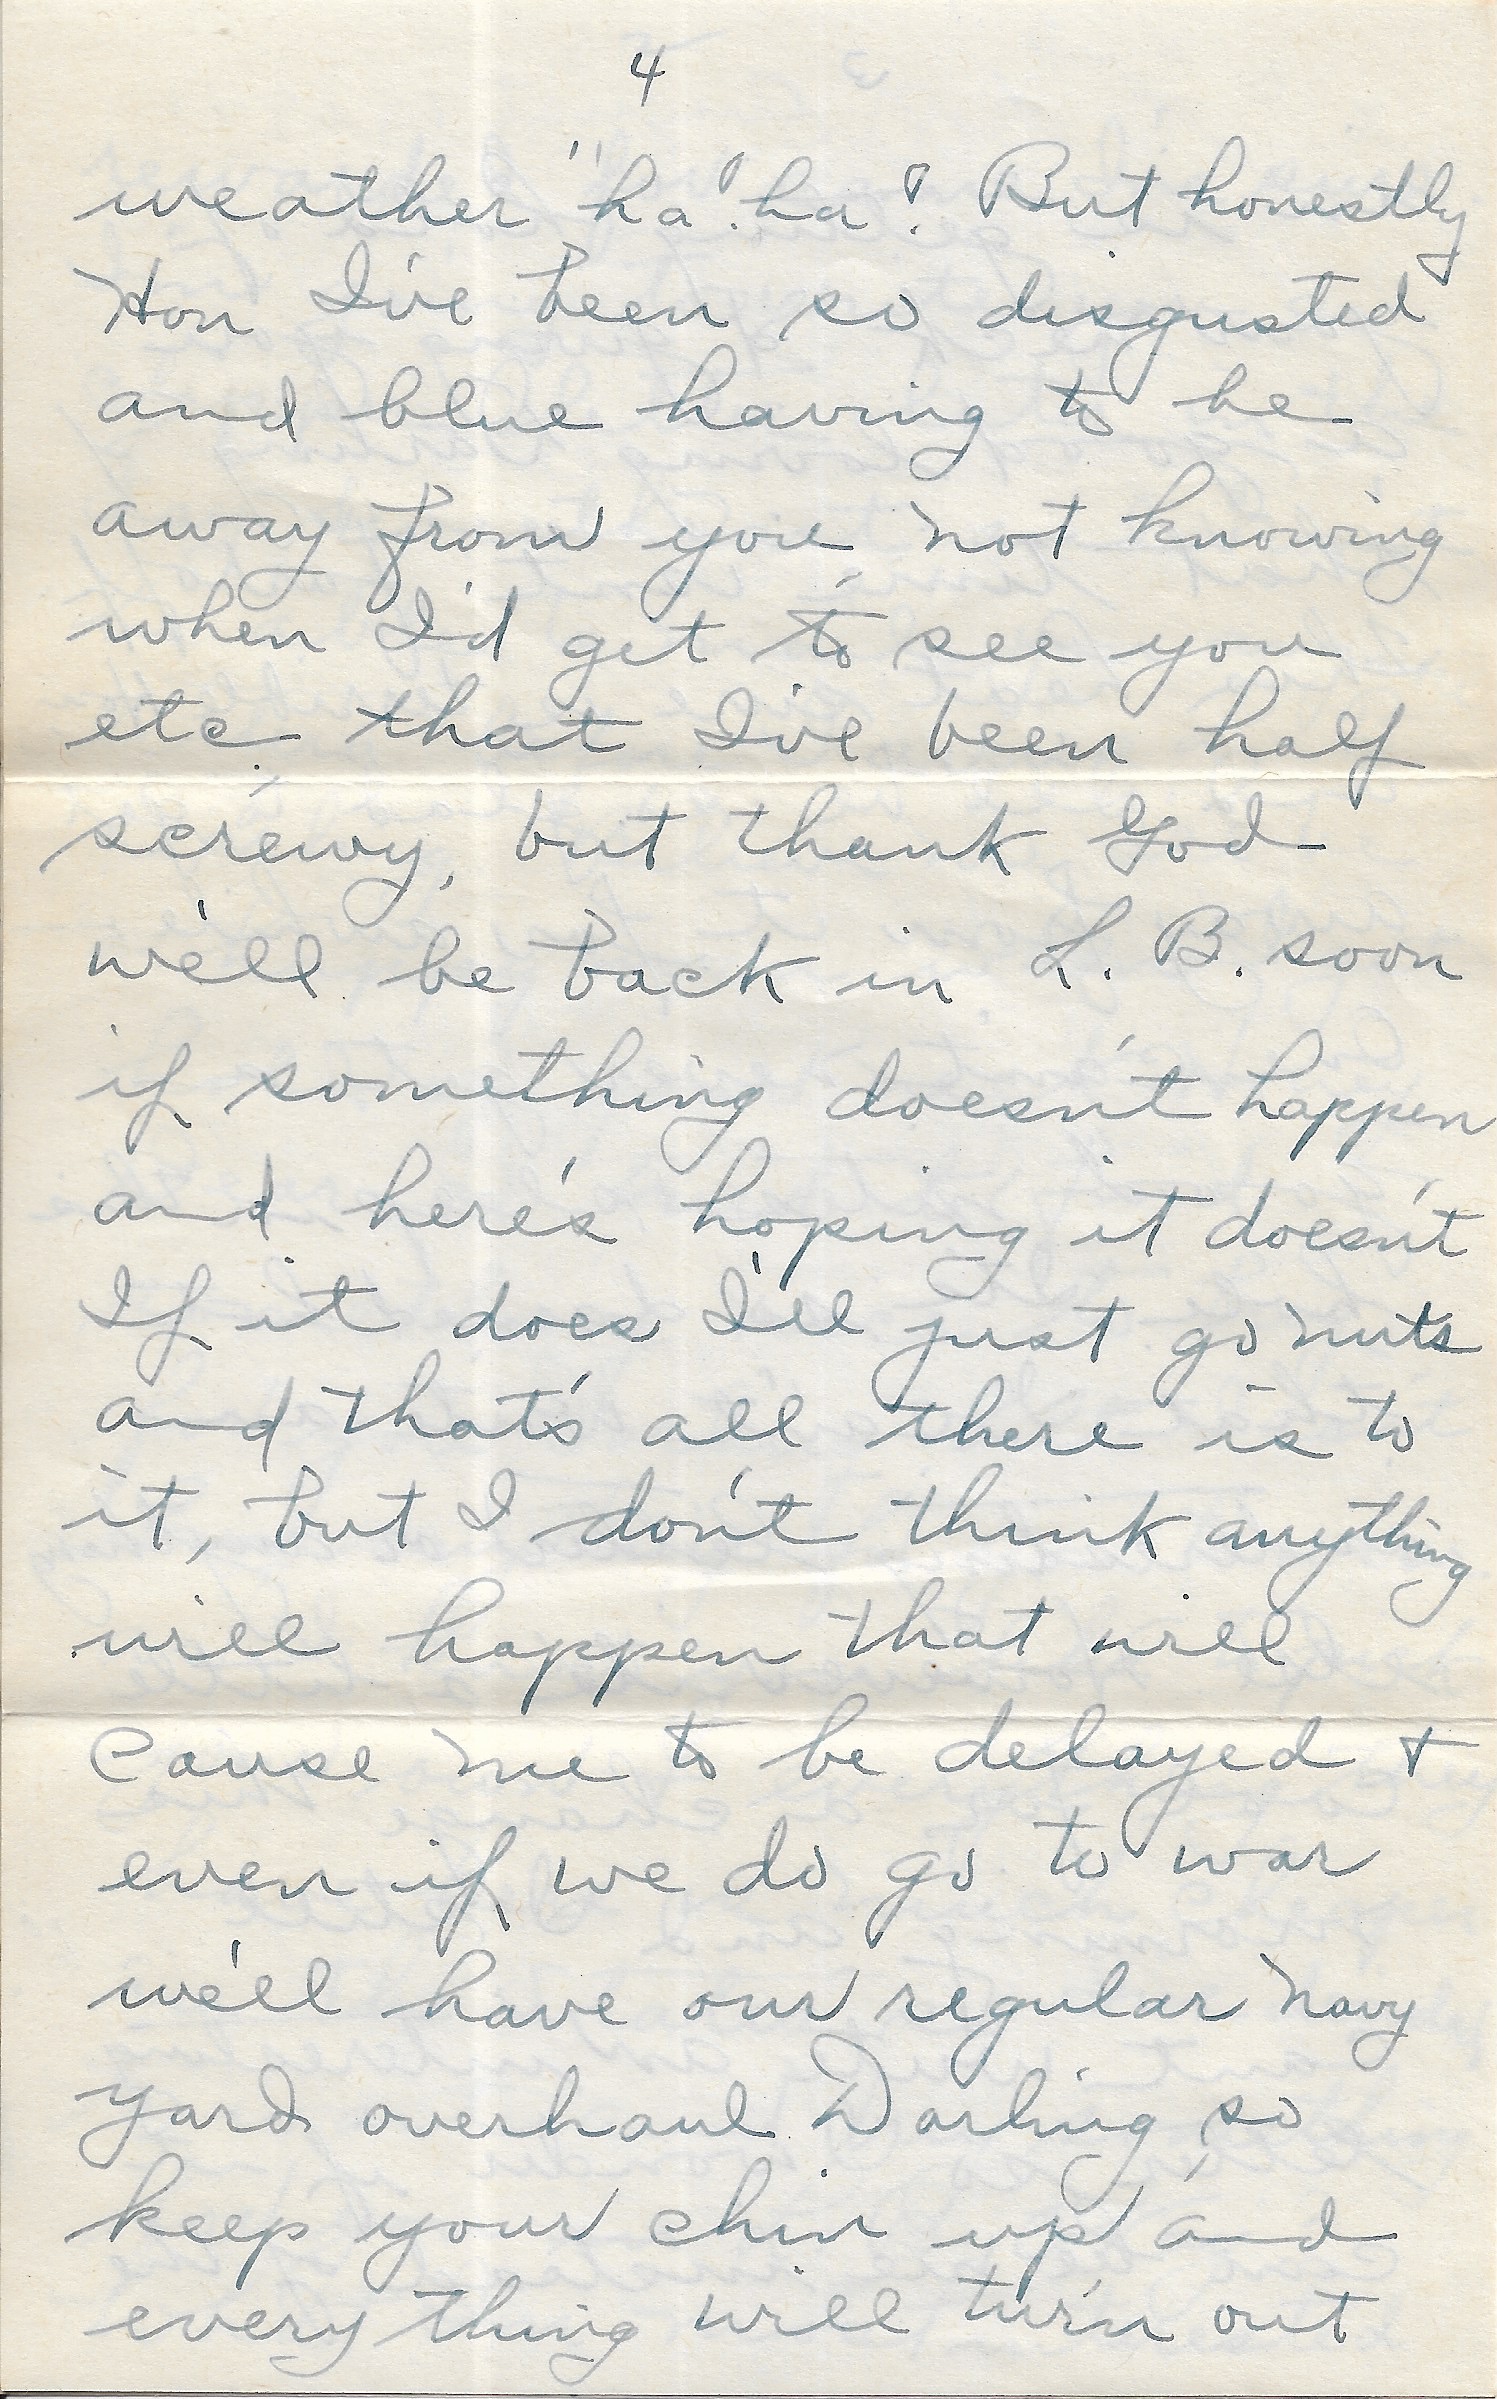 4
weather "ha! ha"! But honestly
Hon I've been so disgusted
and blue having to be
away from you, not knowing
when I'd get to see you
etc., that I've been half
screwy, but thank God
we'll be back in L. B. soon
if something doesn't happen
and here's hoping it doesn't
If it does I'll just go nuts
and that's all there is to
it, but I don't think anything
will happen that will
cause me to be delayed +
even if we do go to war
we'll have our regular Navy
yard overhaul Darling, so
keep your chin up and
everything will turn out